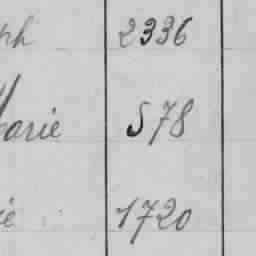 ph 2336
Marie 578
ie 1720